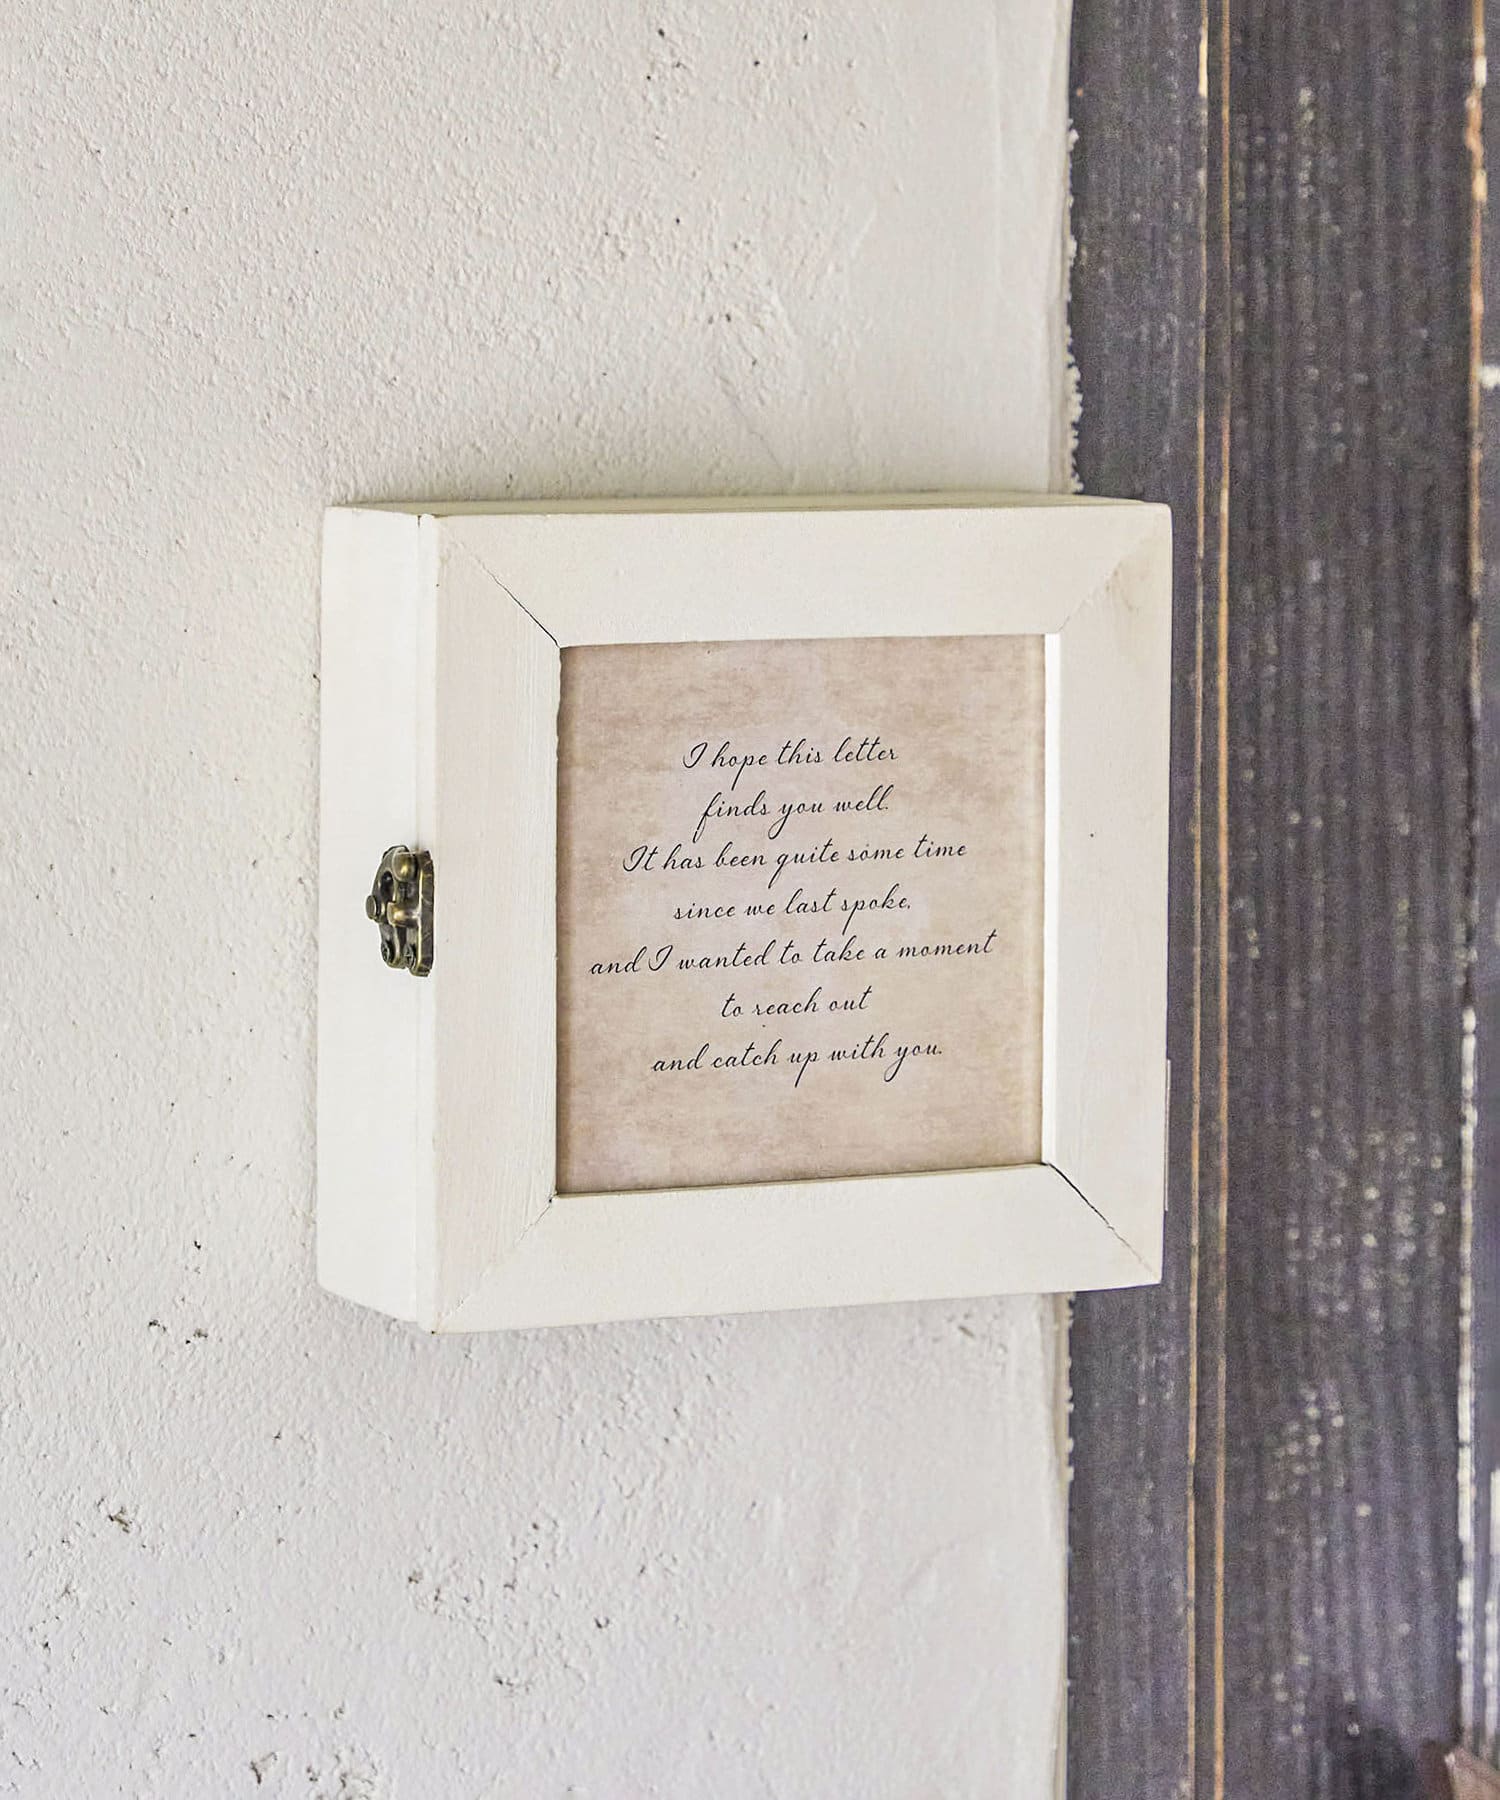 I hope this letter
finds you well.
It has been quite some time
since we last spoke,
and I wanted to take a moment
to reach out
and catch up with you.